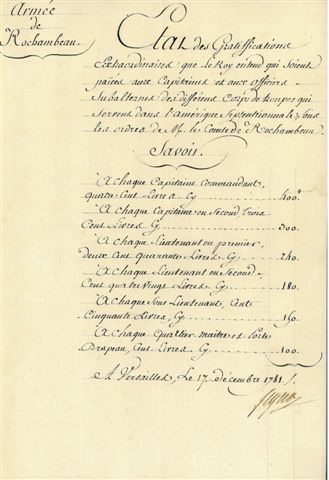 Armée
de
Rochambeau.
Etat des Gratifications
Extraordinaires que Le Roy entend qui soient
païées aux Capitaines et aux officiers
Subalternes des différens Corps de troupes qui
Servent dans l'amérique Septentrionnale, sous
les ordres de M. le Comte de Rochambeau.
Savoir.
A chaque Capitaine Commandant,
quatre Cent Livres Cy ... 400.
A chaque Capitaine en Second, Trois
Cent Livres Cy ... 300.
A chaque Lieutenant en premier,
deux Cent quarante Livres Cy ... 240.
A chaque Lieutenant en Second
Cent quatre vingt Livres Cy ... 180.
A chaque Sous Lieutenant, Cent
Cinquante Livres, Cy ... 150.
A chaque Quartier maitre et Porte
Drapeau, Cent Livres Cy ... 100.
A Versailles, Le 17. décembre 1781.